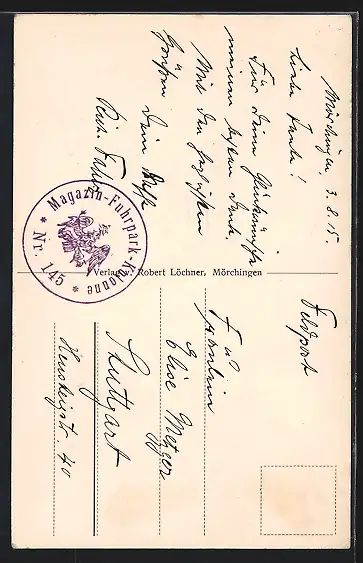 Mörchingen, 3.8.15.
Liebe Tante!
Für Deine Glückwünsche
meinen besten Dank.
Mit den herzlichsten
Grüßen Dein Neffe
* Magazin-Fuhrpark-Kolonne * Nr. 145
Verlag v. Robert Löchner, Mörchingen
Feldpost
Fräulein
Elise Metzger
Stuttgart
40